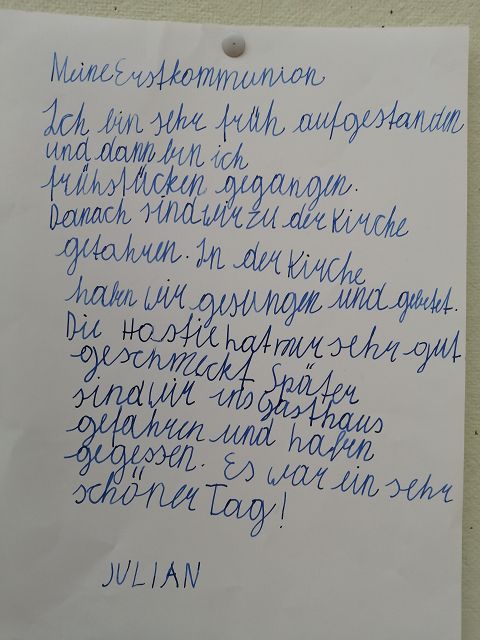 Meine Erstkommunion
Ich bin sehr früh aufgestanden
und dann bin ich
frühstücken gegangen.
Danach sind wir zu der Kirche
gefahren. In der Kirche
haben wir gesungen und gebetet.
Die Hostie hat mir sehr gut
geschmeckt. Später
sind wir ins Gasthaus
gefahren und haben
gegessen. Es war ein sehr
schöner Tag!
JULIAN